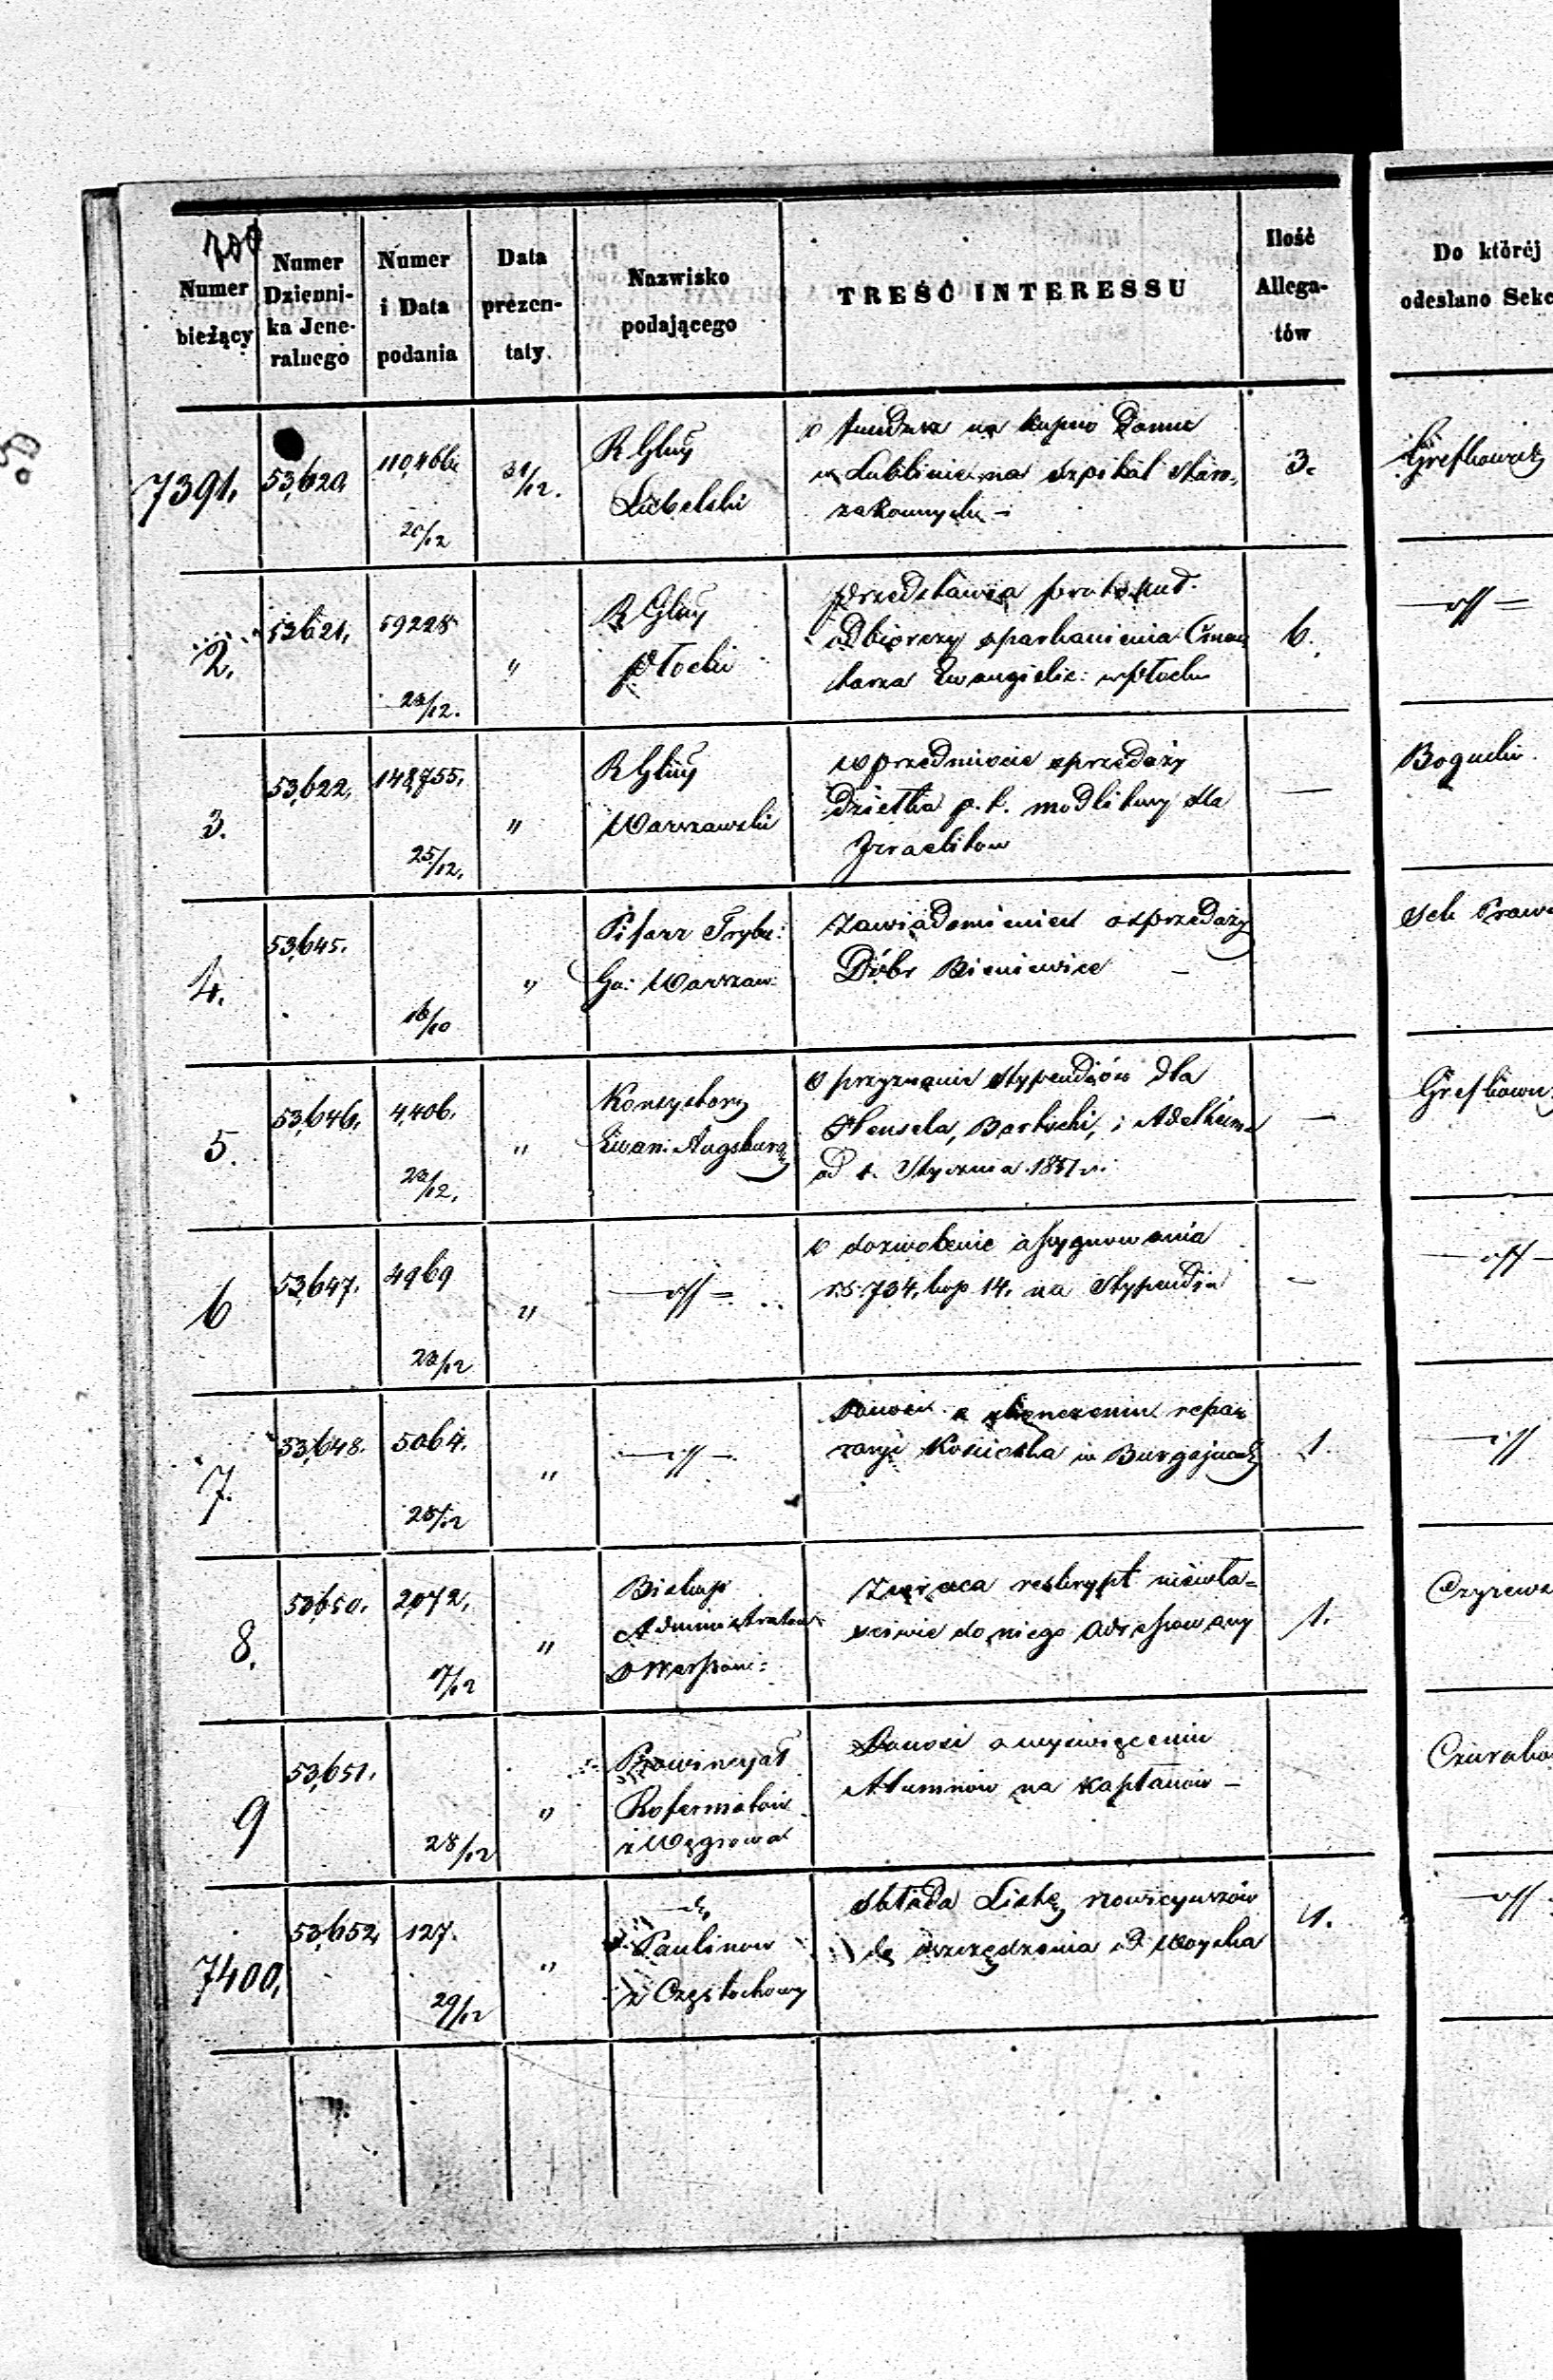 700
Numer bieżący
Numer Dzienni-
ka Jene-
ralnego
Numer
i Data
podania
Data
prezen-
taty.
Nazwisko
podającego
TREŚĆ INTERESSU
Ilość
Allega-
tów
Do któréj
odesłano Sekc
7391. 53,620 110,466 20/12 31/12.
R Glny
Lubelski
o fundusz na kupno Domu
w Lublinie na szpital staro-
zakonnych –
3.
2. 53621. 59228 23/12. "
R Glny
Płocki
przedstawia protokuł.
odbiorczy oparkanienia Cmen
tarza Ewangielic: w Płocku
6.
— off =
3. 53,622. 148,755. 25/12. "
R Glny
Warszawski
w przedmiocie sprzedaży
Dziełka p. t. modlitwy dla
Izraelitow
—
Bogucki.
4. 53,645. 16/10 "
Pisarz Trybu:
Gu: Warszaw:
Zawiadomienie o sprzedaży
Dóbr Bieniewice –
Sek Prawn
5. 53,646. 4,406. 23/12. "
Konsystorz
Ewan: Augsburg
o przyznanie stypendiów dla
Hensela, Bartschi, i Adelheim
od 1. Stycznia 1851 r.
—
6 53,647. 4969 23/12 "
— off =
o dozwolenie assygnowania
rs. 734, kop 14. na Stypendia
–
— off –
7. 53,648. 5064. 28/12 "
— off –
Donosi o skończeniu repa
racyi Kościoła w
1.
— off
8. 53,650. 2,072. 17/12 "
Biskup
Administrator
Zwraca reskrypt niewła=
ściwie do niego adressowany
1.
9 53,651. 28/12 "
Prowincyał
Reformatów
z Węgrowa
Donosi o wyświęceniu
Alumnów na kapłanów –
7400. 53,652 127. 29/12 "
Paulinow
z Częstochowy
składa Listę nowicyuszów
1.
— off